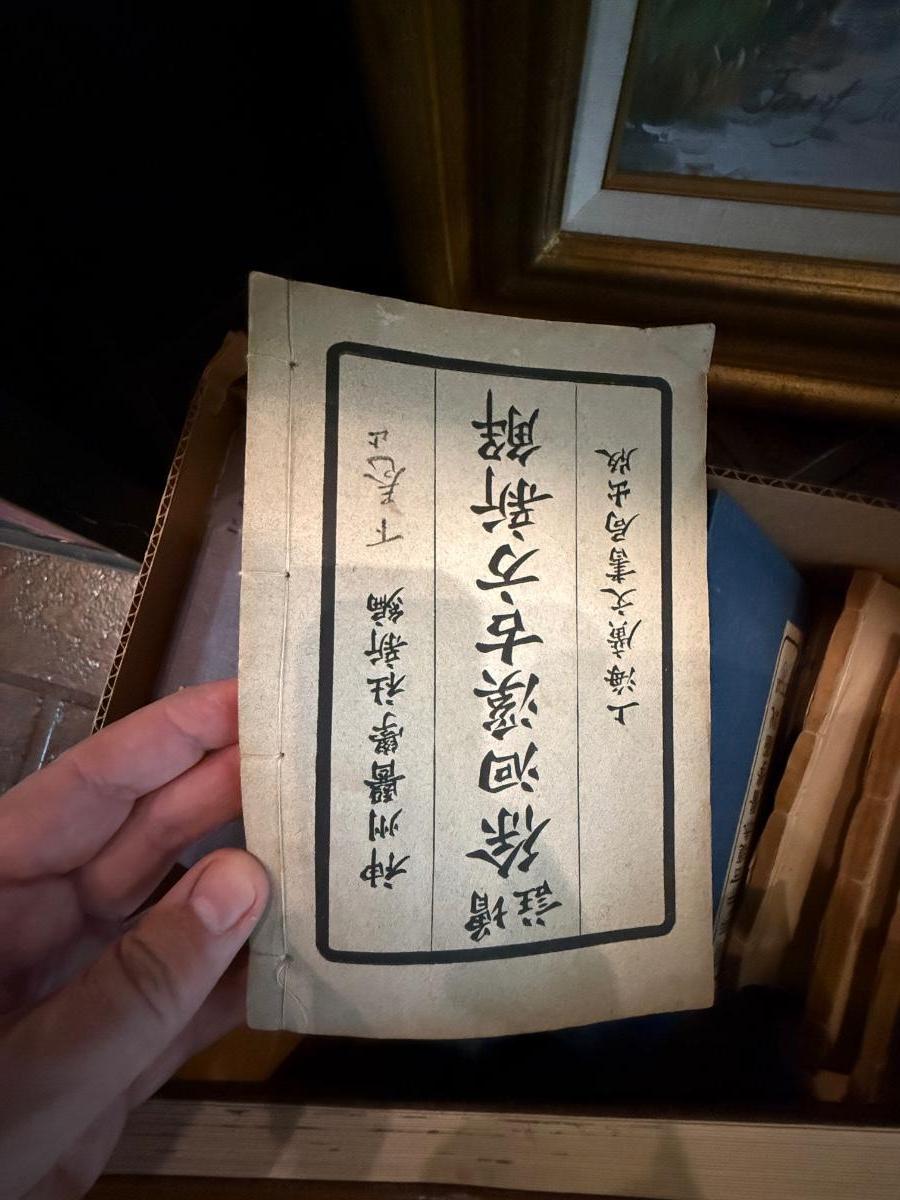 神州醫學社新編
增註徐洄溪古方新解
上海廣文書局出版